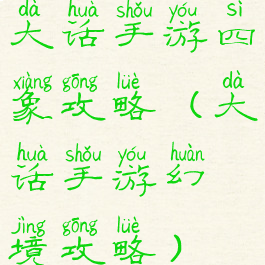 dà huà shǒu yóu sì
大话手游四
xiàng gōng lüè dà
象攻略（大
huà shǒu yóu huàn
话手游幻
jìng gōng lüè
境攻略）